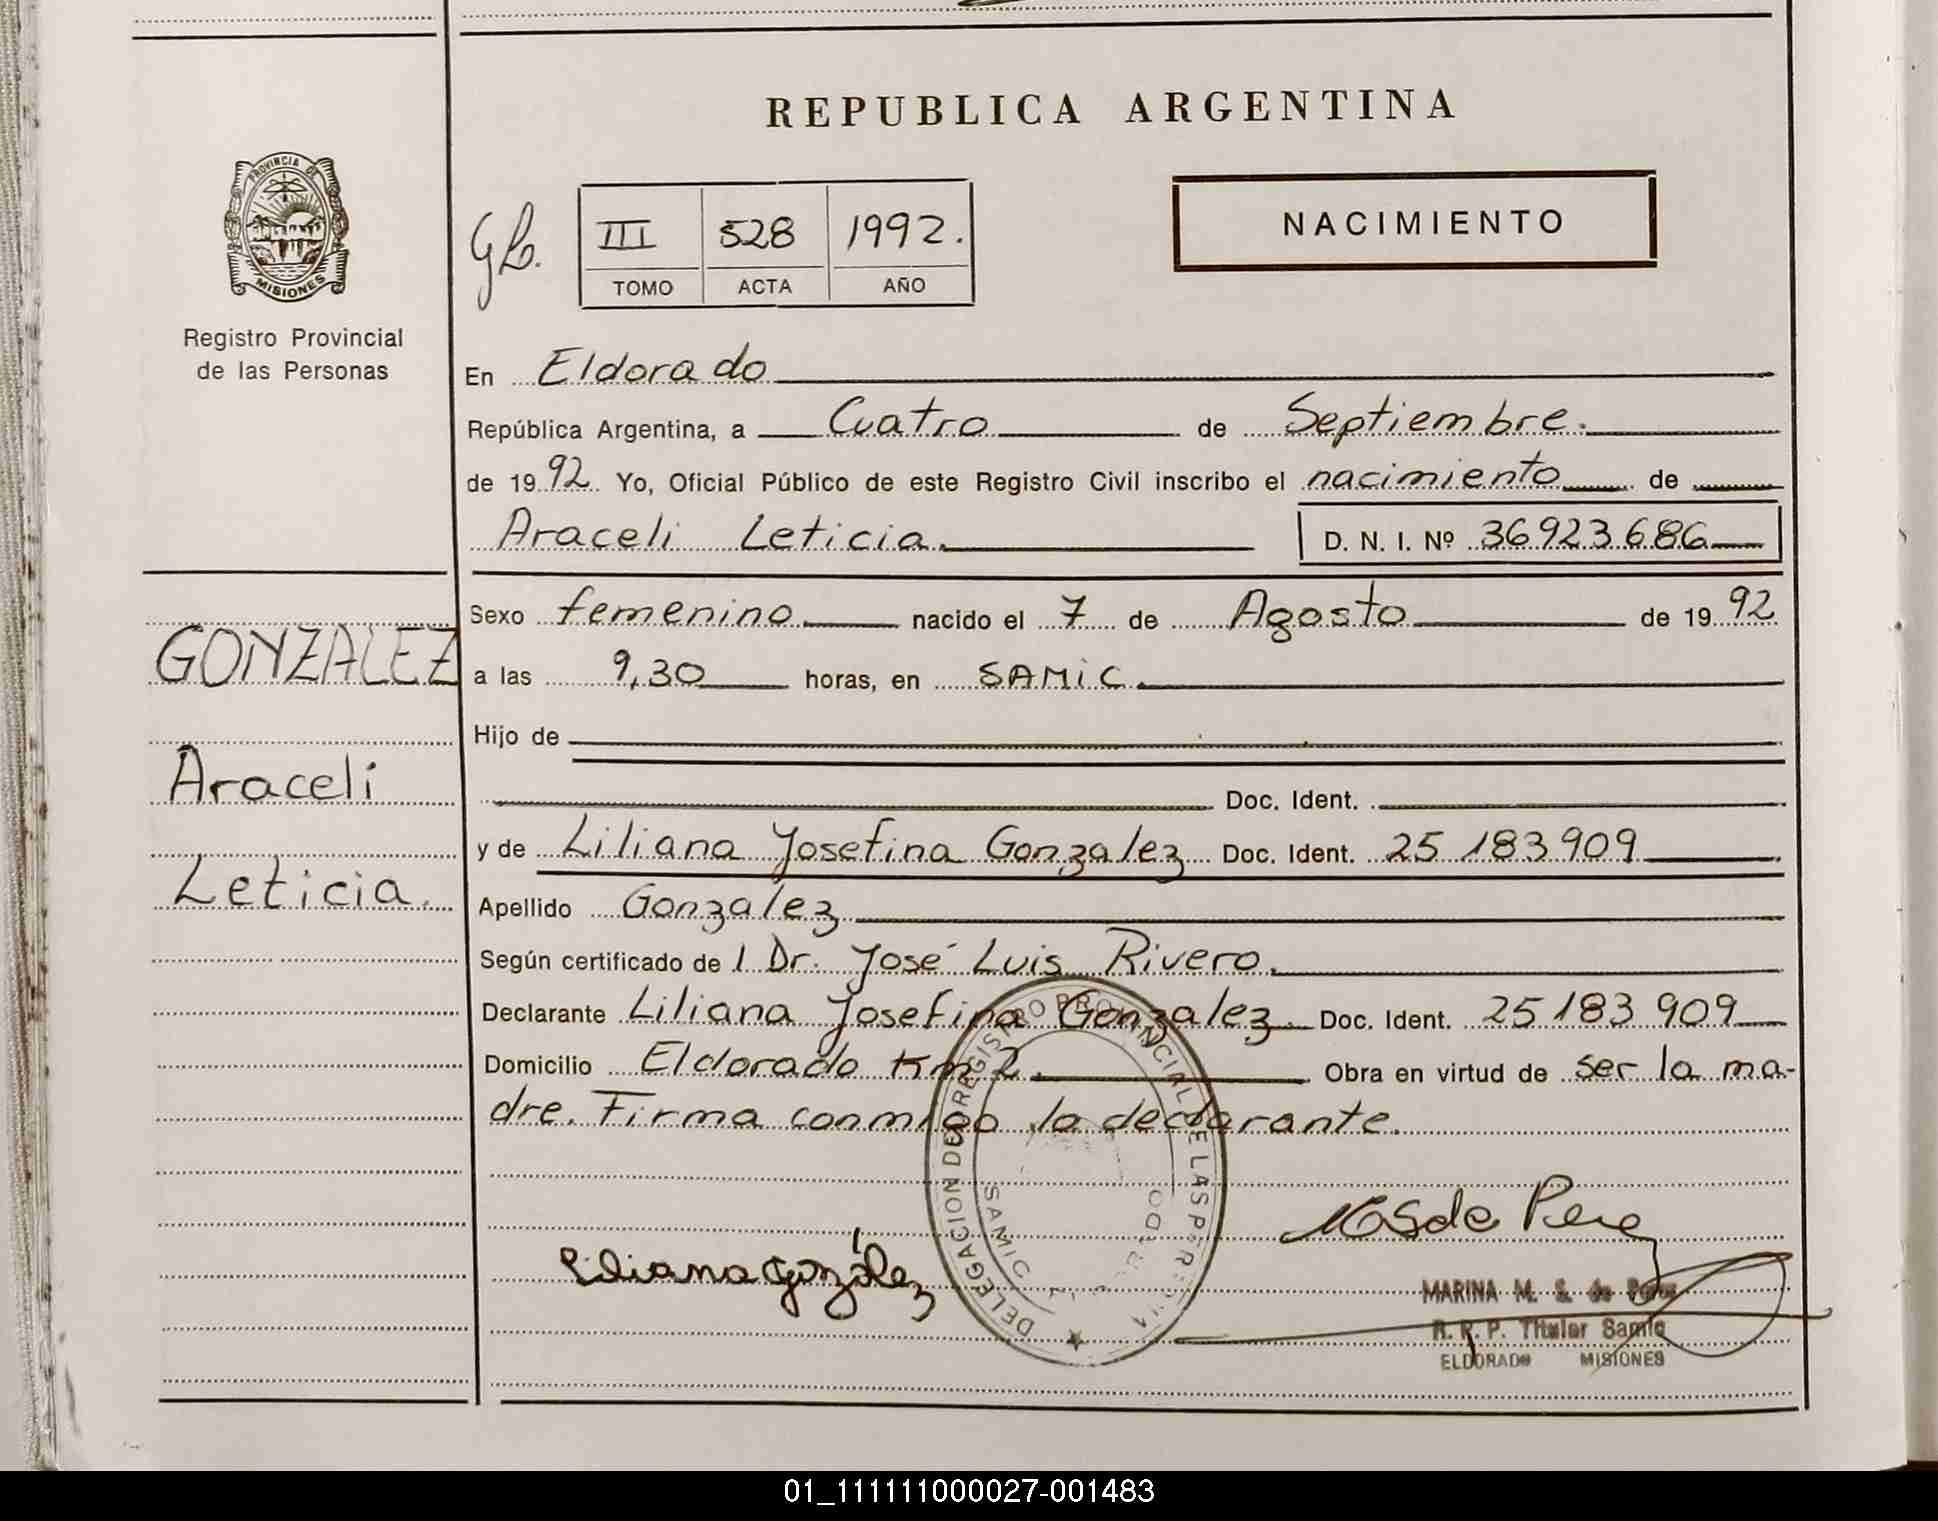 REPUBLICA ARGENTINA
PROVINCIA DE
MISIONES
Registro Provincial
de las Personas
III 528 1992.
TOMO ACTA AÑO
NACIMIENTO
En Eldorado
República Argentina, a Cuatro de Septiembre.
de 1992. Yo, Oficial Público de este Registro Civil inscribo el nacimiento de
Araceli Leticia. D. N. I. Nº 36923686
Sexo femenino nacido el 7 de Agosto de 1992
a las 9,30 horas, en SAMiC.
Hijo de
Doc. Ident.
y de Liliana Josefina Gonzalez Doc. Ident. 25 183 909
Apellido Gonzalez
Según certificado de l Dr. José Luis Rivero.
Declarante Liliana Josefina Gonzalez. Doc. Ident. 25 183 909
Domicilio Eldorado Km 2. Obra en virtud de ser la ma-
dre. Firma conmigo la declarante.
GONZALEZ
Araceli
Leticia.
DELEGACION DEL REGISTRO PROVINCIAL DE LAS PERSONAS
SAMIC
Liliana González
MARINA M. S. de Perez
R. R. P. Titular Samic
ELDORADO MISIONES
01_111111000027-001483